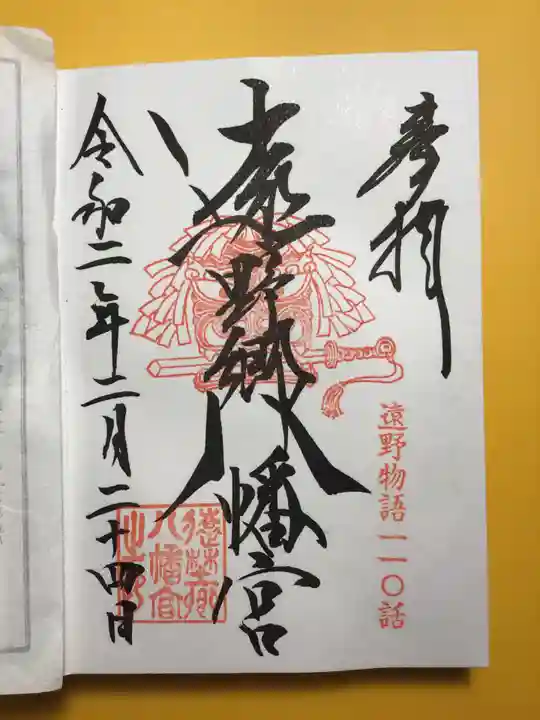 奉拝
遠野物語一一〇話
遠野郷八幡宮
令和二年二月二十四日
遠野郷
八幡宮
之印